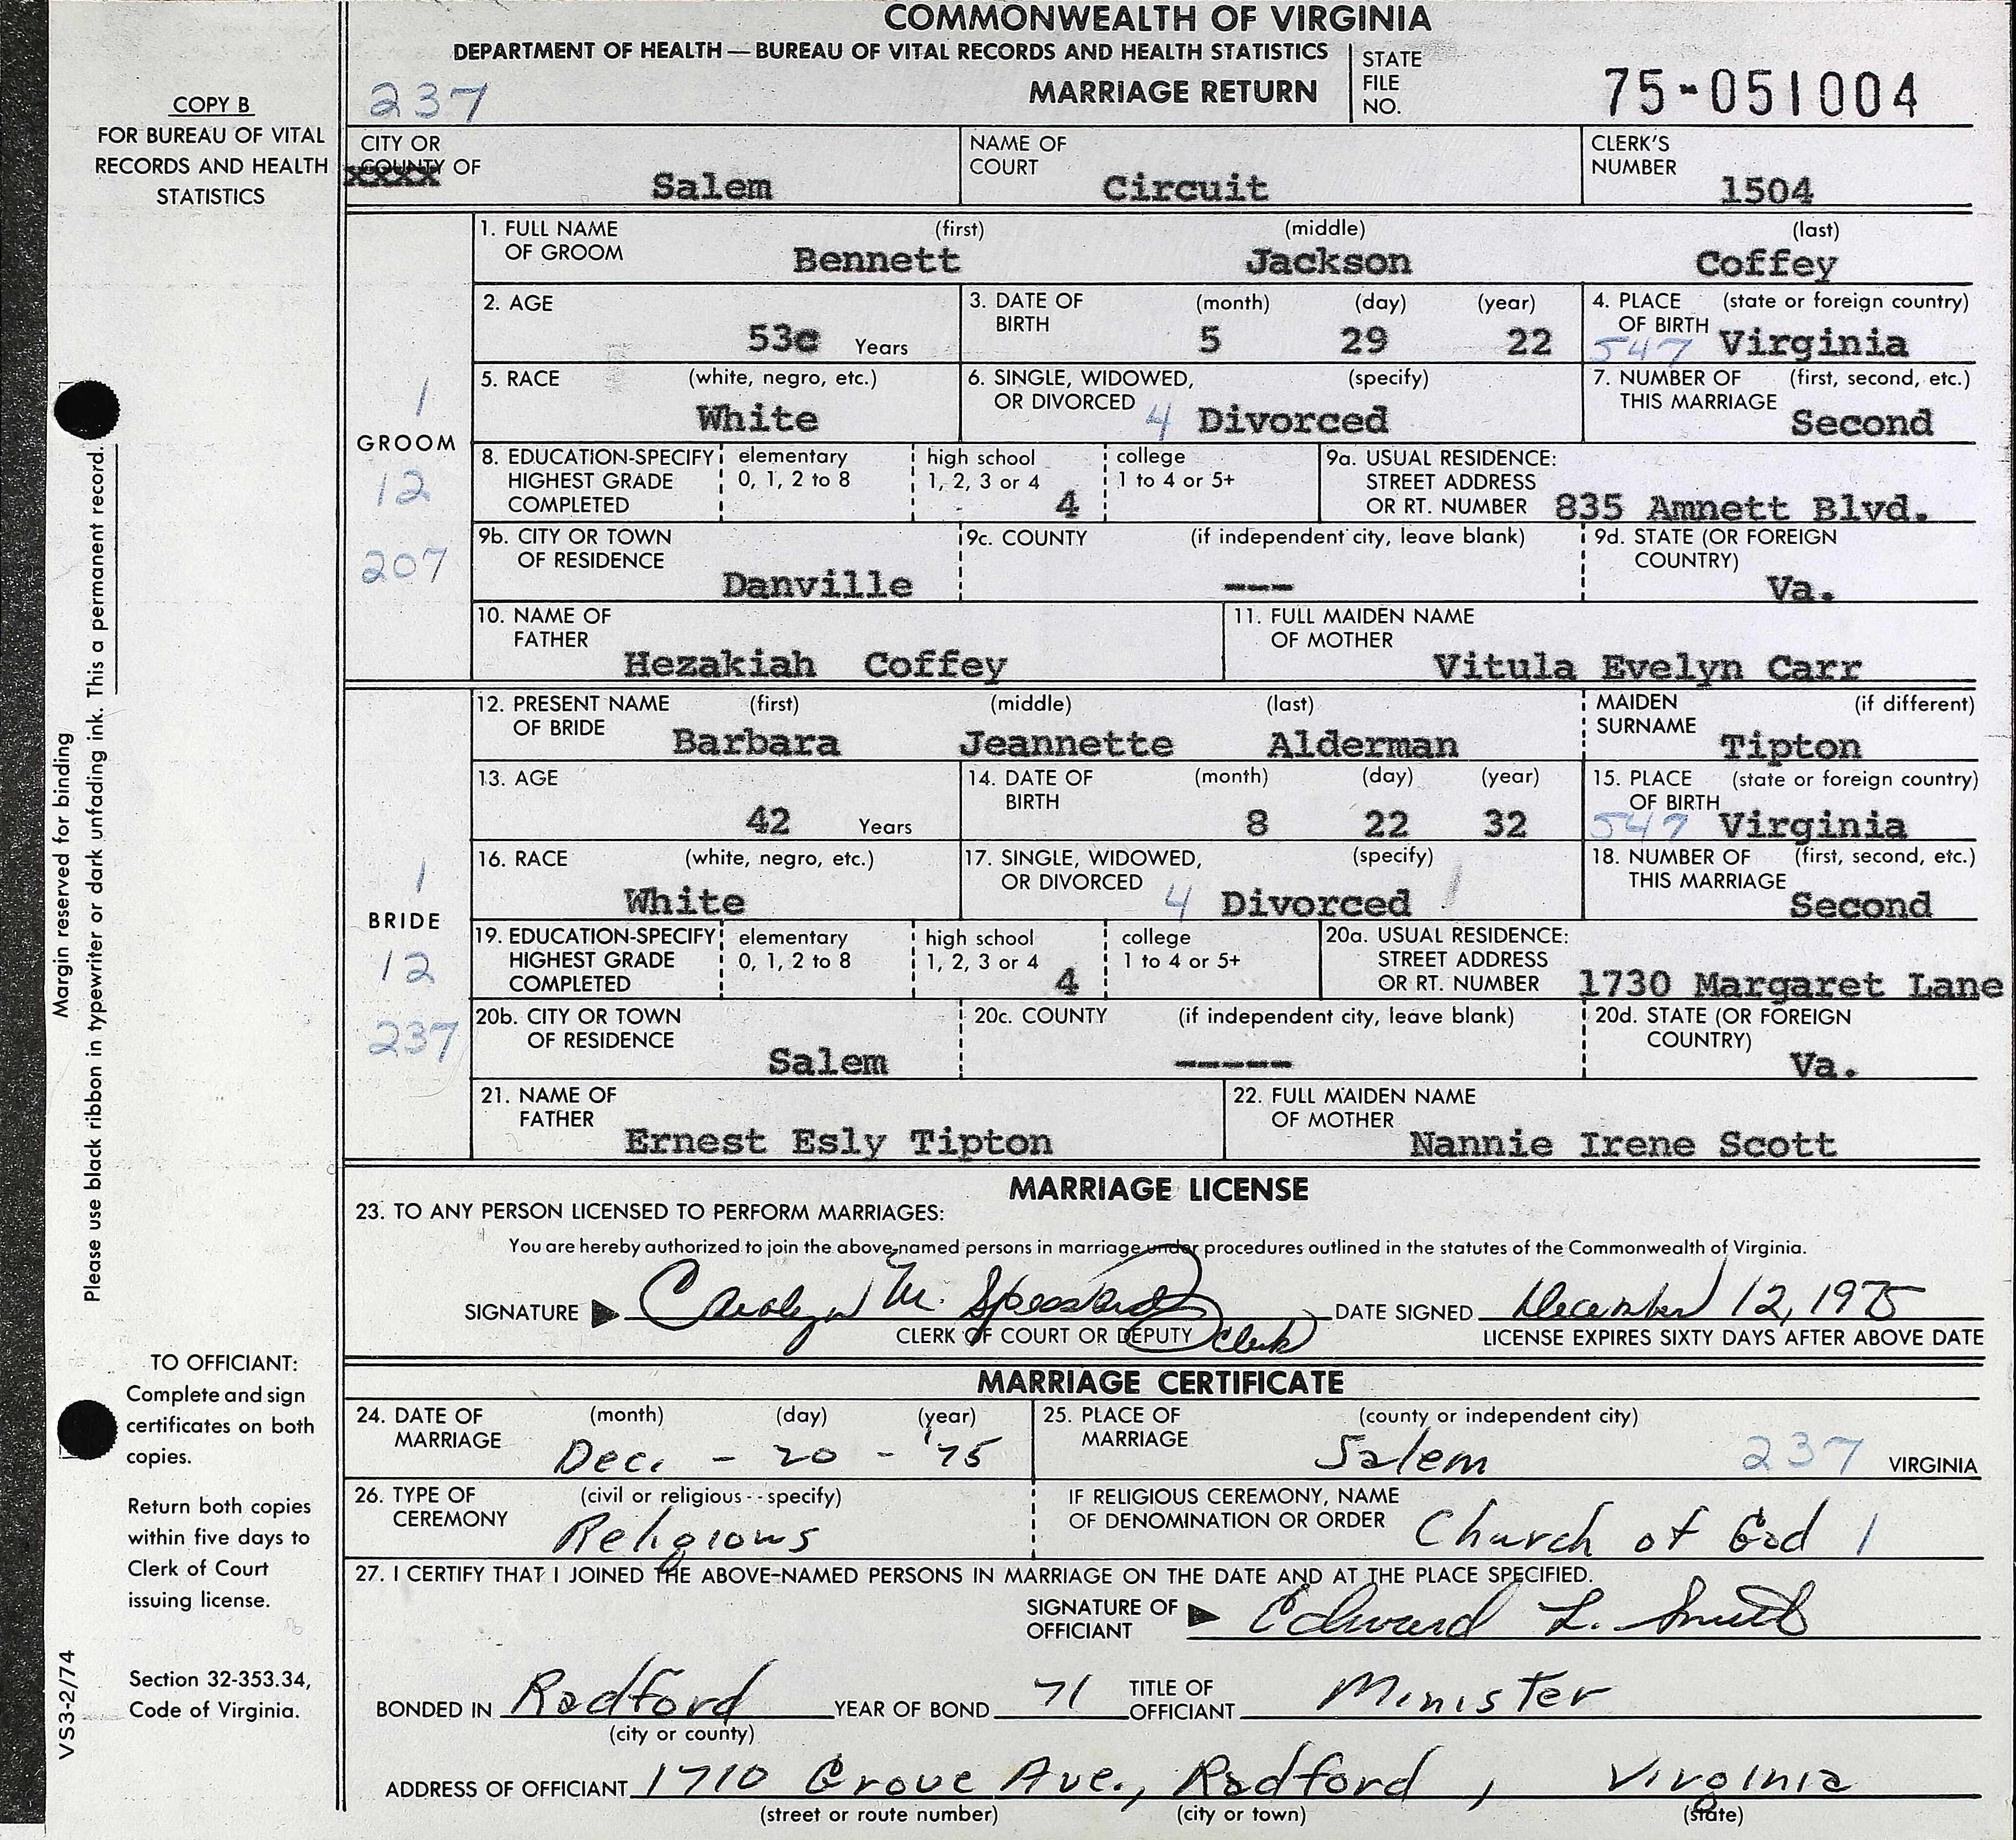 COMMONWEALTH OF VIRGINIA
DEPARTMENT OF HEALTH — BUREAU OF VITAL RECORDS AND HEALTH STATISTICS
237
MARRIAGE RETURN
STATE FILE NO. 75-051004
COPY B
FOR BUREAU OF VITAL
RECORDS AND HEALTH
STATISTICS
CITY OR COUNTY OF Salem
NAME OF COURT Circuit
CLERK'S NUMBER 1504
1. FULL NAME OF GROOM (first) Bennett (middle) Jackson (last) Coffey
2. AGE 53 Years
3. DATE OF BIRTH (month) 5 (day) 29 (year) 22
4. PLACE OF BIRTH (state or foreign country) 547 Virginia
1
GROOM
12
207
5. RACE (white, negro, etc.) White
6. SINGLE, WIDOWED, OR DIVORCED (specify) 4 Divorced
7. NUMBER OF THIS MARRIAGE (first, second, etc.) Second
8. EDUCATION-SPECIFY HIGHEST GRADE COMPLETED
elementary 0, 1, 2 to 8
high school 1, 2, 3 or 4 4
college 1 to 4 or 5+
9a. USUAL RESIDENCE: STREET ADDRESS OR RT. NUMBER 835 Amnett Blvd.
9b. CITY OR TOWN OF RESIDENCE Danville
9c. COUNTY (if independent city, leave blank) ---
9d. STATE (OR FOREIGN COUNTRY) Va.
10. NAME OF FATHER Hezakiah Coffey
11. FULL MAIDEN NAME OF MOTHER Vitula Evelyn Carr
12. PRESENT NAME OF BRIDE (first) Barbara (middle) Jeannette (last) Alderman
MAIDEN SURNAME (if different) Tipton
13. AGE 42 Years
14. DATE OF BIRTH (month) 8 (day) 22 (year) 32
15. PLACE OF BIRTH (state or foreign country) 547 Virginia
1
BRIDE
12
237
16. RACE (white, negro, etc.) White
17. SINGLE, WIDOWED, OR DIVORCED (specify) 4 Divorced
18. NUMBER OF THIS MARRIAGE (first, second, etc.) Second
19. EDUCATION-SPECIFY HIGHEST GRADE COMPLETED
elementary 0, 1, 2 to 8
high school 1, 2, 3 or 4 4
college 1 to 4 or 5+
20a. USUAL RESIDENCE: STREET ADDRESS OR RT. NUMBER 1730 Margaret Lane
20b. CITY OR TOWN OF RESIDENCE Salem
20c. COUNTY (if independent city, leave blank) -----
20d. STATE (OR FOREIGN COUNTRY) Va.
21. NAME OF FATHER Ernest Esly Tipton
22. FULL MAIDEN NAME OF MOTHER Nannie Irene Scott
Margin reserved for binding
Please use black ribbon in typewriter or dark unfading ink. This a permanent record.
MARRIAGE LICENSE
23. TO ANY PERSON LICENSED TO PERFORM MARRIAGES:
You are hereby authorized to join the above-named persons in marriage under procedures outlined in the statutes of the Commonwealth of Virginia.
SIGNATURE Carolyn M. DATE SIGNED December 12, 1975
CLERK OF COURT OR DEPUTY Clerk LICENSE EXPIRES SIXTY DAYS AFTER ABOVE DATE
MARRIAGE CERTIFICATE
24. DATE OF MARRIAGE (month) (day) (year) Dec. - 20 - '75
25. PLACE OF MARRIAGE (county or independent city) Salem 237 VIRGINIA
26. TYPE OF CEREMONY (civil or religious -- specify) Religious
IF RELIGIOUS CEREMONY, NAME OF DENOMINATION OR ORDER Church of God 1
27. I CERTIFY THAT I JOINED THE ABOVE-NAMED PERSONS IN MARRIAGE ON THE DATE AND AT THE PLACE SPECIFIED.
SIGNATURE OF OFFICIANT Edward L. Smith
BONDED IN Radford (city or county) YEAR OF BOND 71 TITLE OF OFFICIANT Minister
ADDRESS OF OFFICIANT 1710 Grove Ave., Radford, Virginia
(street or route number) (city or town) (state)
TO OFFICIANT:
Complete and sign
certificates on both
copies.
Return both copies
within five days to
Clerk of Court
issuing license.
Section 32-353.34,
Code of Virginia.
VS3-2/74